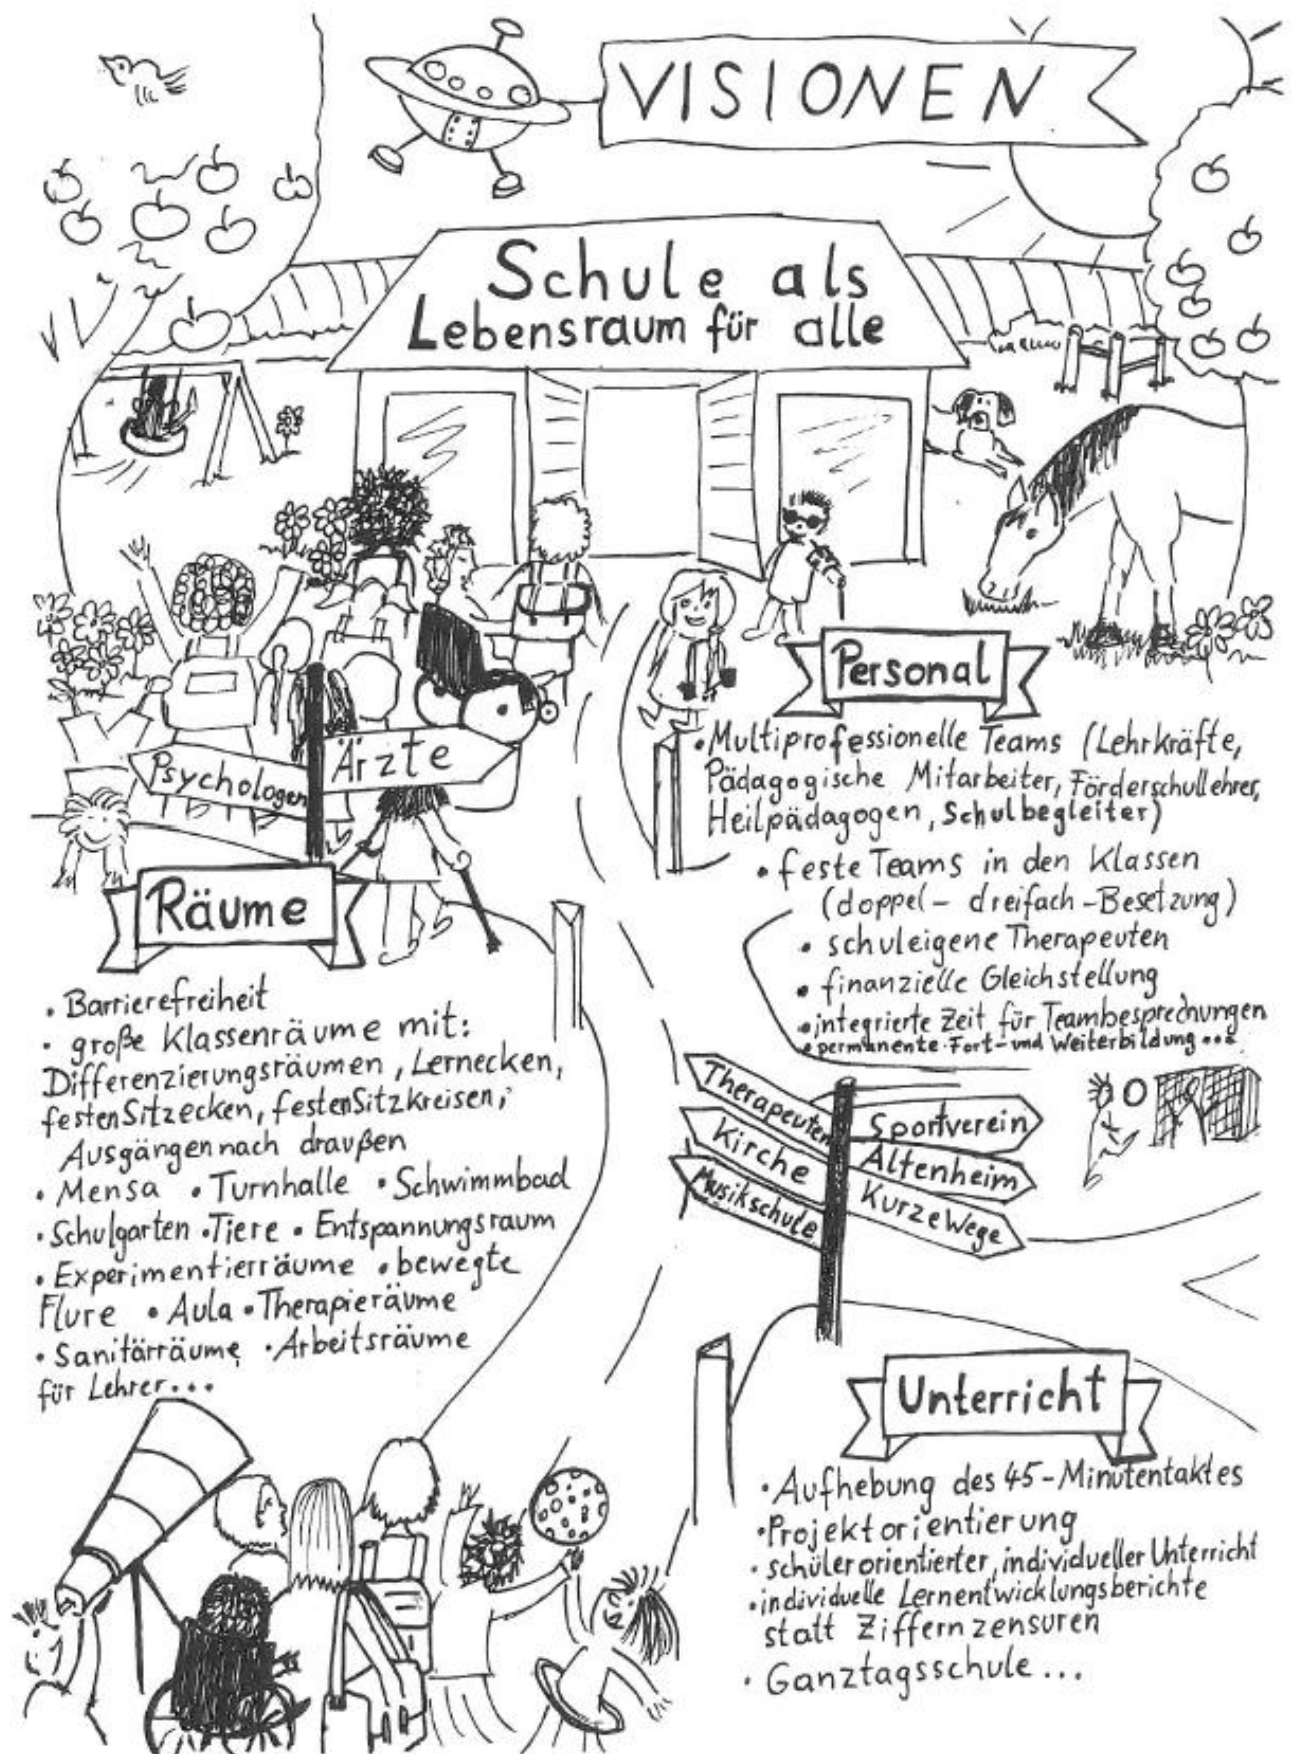 VISIONEN
Schule als
Lebensraum für alle
Psychologen
Ärzte
Personal
• Multiprofessionelle Teams (Lehrkräfte,
Pädagogische Mitarbeiter, Förderschullehrer,
Heilpädagogen, Schulbegleiter)
• feste Teams in den Klassen
(doppel- dreifach-Besetzung)
• schuleigene Therapeuten
• finanzielle Gleichstellung
• integrierte Zeit für Teambesprechungen
• permanente Fort- und Weiterbildung...
Räume
• Barrierefreiheit
• große Klassenräume mit:
Differenzierungsräumen, Lernecken,
festen Sitzecken, festen Sitzkreisen,
Ausgängen nach draußen
• Mensa • Turnhalle • Schwimmbad
• Schulgarten • Tiere • Entspannungsraum
• Experimentierräume • bewegte
Flure • Aula • Therapieräume
• Sanitärräume • Arbeitsräume
für Lehrer...
Therapeuten
Kirche
Musikschule
Sportverein
Altenheim
Kurze Wege
Unterricht
• Aufhebung des 45-Minutentaktes
• Projektorientierung
• schülerorientierter, individueller Unterricht
• individuelle Lernentwicklungsberichte
statt Ziffernzensuren
• Ganztagsschule...